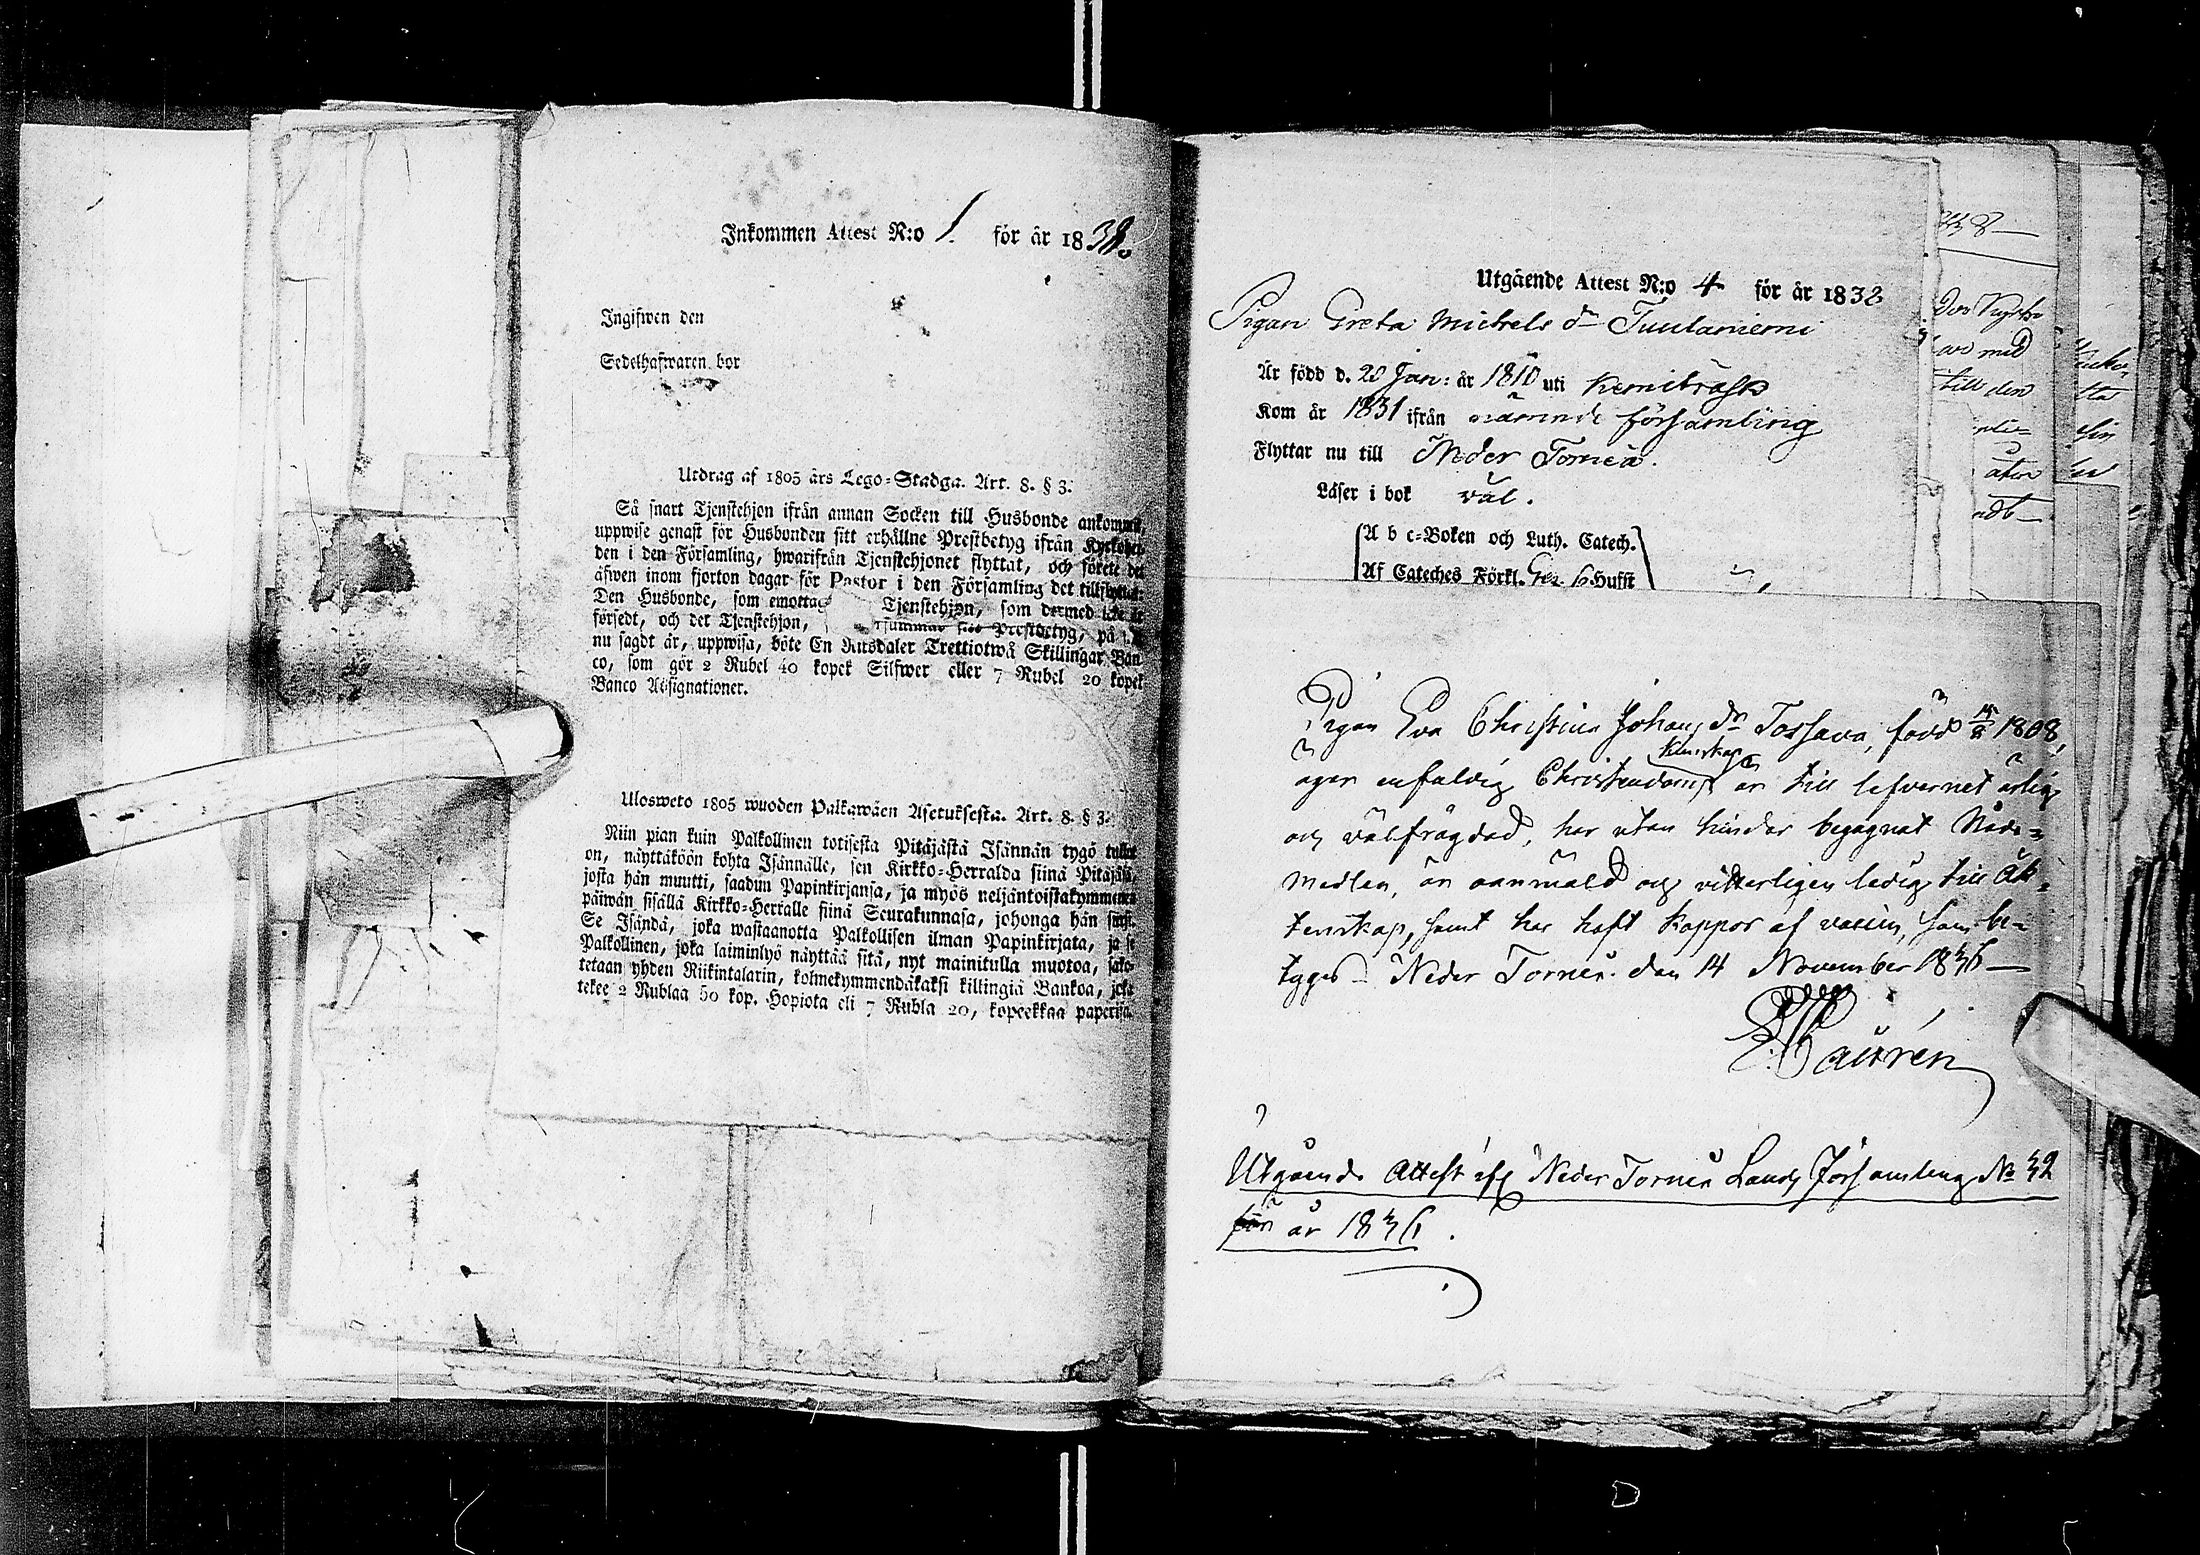 Inkommen Attest N:o 1. för år 1838.
Ingifwen den
Sedelhafwaren bor
Utdrag af 1805 års Lego-Stadga. Art. 8. § 3.
Så snart Tjenstehjon ifrån annan Socken till Husbonde ankommit,
uppwise genast för Husbonden sitt erhållne Prestbetyg ifrån
den i den Församling, hwarifrån Tjenstehjonet flyttat, och förete det
äfwen inom fjorton dagar för Pastor i den Församling det
Den Husbonde, som emottag Tjenstehjon, som dermed icke är
försedt, och det Tjenstehjon, Prestbetyg, på
nu sagdt är, uppwisa, böte En Riksdaler Trettiotwå Skillingar Ban
co, som gör 2 Rubel 40 kopek Silfwer eller 7 Rubel 20 kopek
Banco Assignationer.
Ulosweto 1805 wuoden Palkawäen Asetuksesta. Art. 8. § 3.
Niin pian kuin Palkollinen totisesta Pitäjästä Isännän tygö tullut
on, näyttäköön kohta Isännälle, sen Kirkko-Herralda siinä Pitäjäsä,
josta hän muutti, saadun Papinkirjansa, ja myös neljäntoistakymmenen
päiwän sisällä Kirkko-Herralle siinä Seurakunnasa, johonga hän
Se Isändä, joka wastaanotta Palkollisen ilman Papinkirjata, ja se
Palkollinen, joka laiminlyö näyttää sitä, nyt mainitulla muotoa, sako-
tetaan yhden Riikintalarin, kolmekymmendäkaksi killingiä Bankoa, joka
tekee 2 Rublaa 50 kop. Hopiota eli 7 Rubla 20, kopeekkaa paperisa.
Utgående Attest N:o 4 för år 1832
Pigan Greta Michels dr Tuulaniemi
Är född d. 20 Jan: år 1810 uti Kemiträsk
Kom år 1831 ifrån nämnde församling
Flyttar nu till Neder Torneå.
Läser i bok väl.
A b c-Boken och Luth. Catech.
Af Cateches Förkl. 6 Hufst
Pigan Eva Christina Johans dr Tossava, född 1808,
kunskap
äger enfaldig Christendoms är till lefvernet ärlig
och välfrägdad, har utan hinder begagnat Nåde-
medlen, är oanmäld och vitterligen ledig till Äk-
tenskap, samt har haft koppor af vaccin, som be-
tyges Neder Torneå den 14 November 1836
Utgående Attest af Neder Torneå Lands Församling No 32
för år 1836.